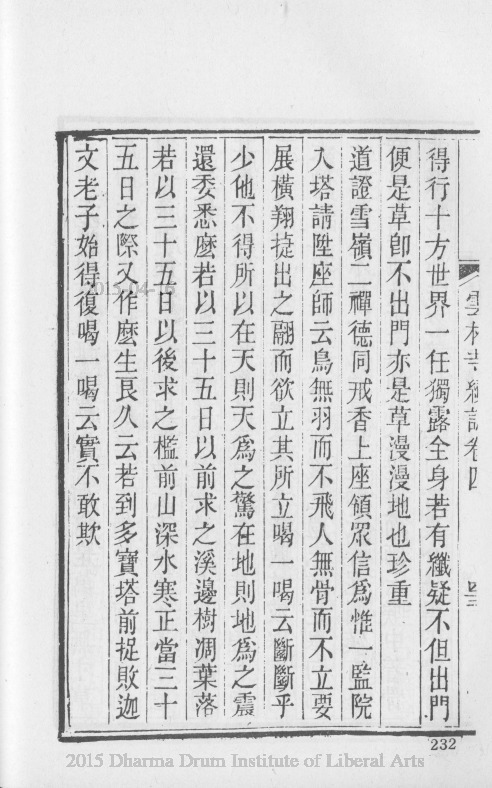 雲林寺續誌卷四
得行十方世界一任獨露全身若有纖疑不但出門
便是草卽不出門亦是草漫漫地也珍重
道證雪嶺二禪德同戒香上座領眾信爲惟一監院
入塔請陞座師云鳥無羽而不飛人無骨而不立要
展橫翔捷出之翮而欲立其所立喝一喝云斷斷乎
少他不得所以在天則天爲之驚在地則地爲之震
還委悉麼若以三十五日以前求之溪邊樹凋葉落
若以三十五日以後求之檻前山深水寒正當三十
五日之際又作麼生良久云若到多寶塔前捉敗迦
文老子始得復喝一喝云實不敢欺
232
2015 Dharma Drum Institute of Liberal Arts